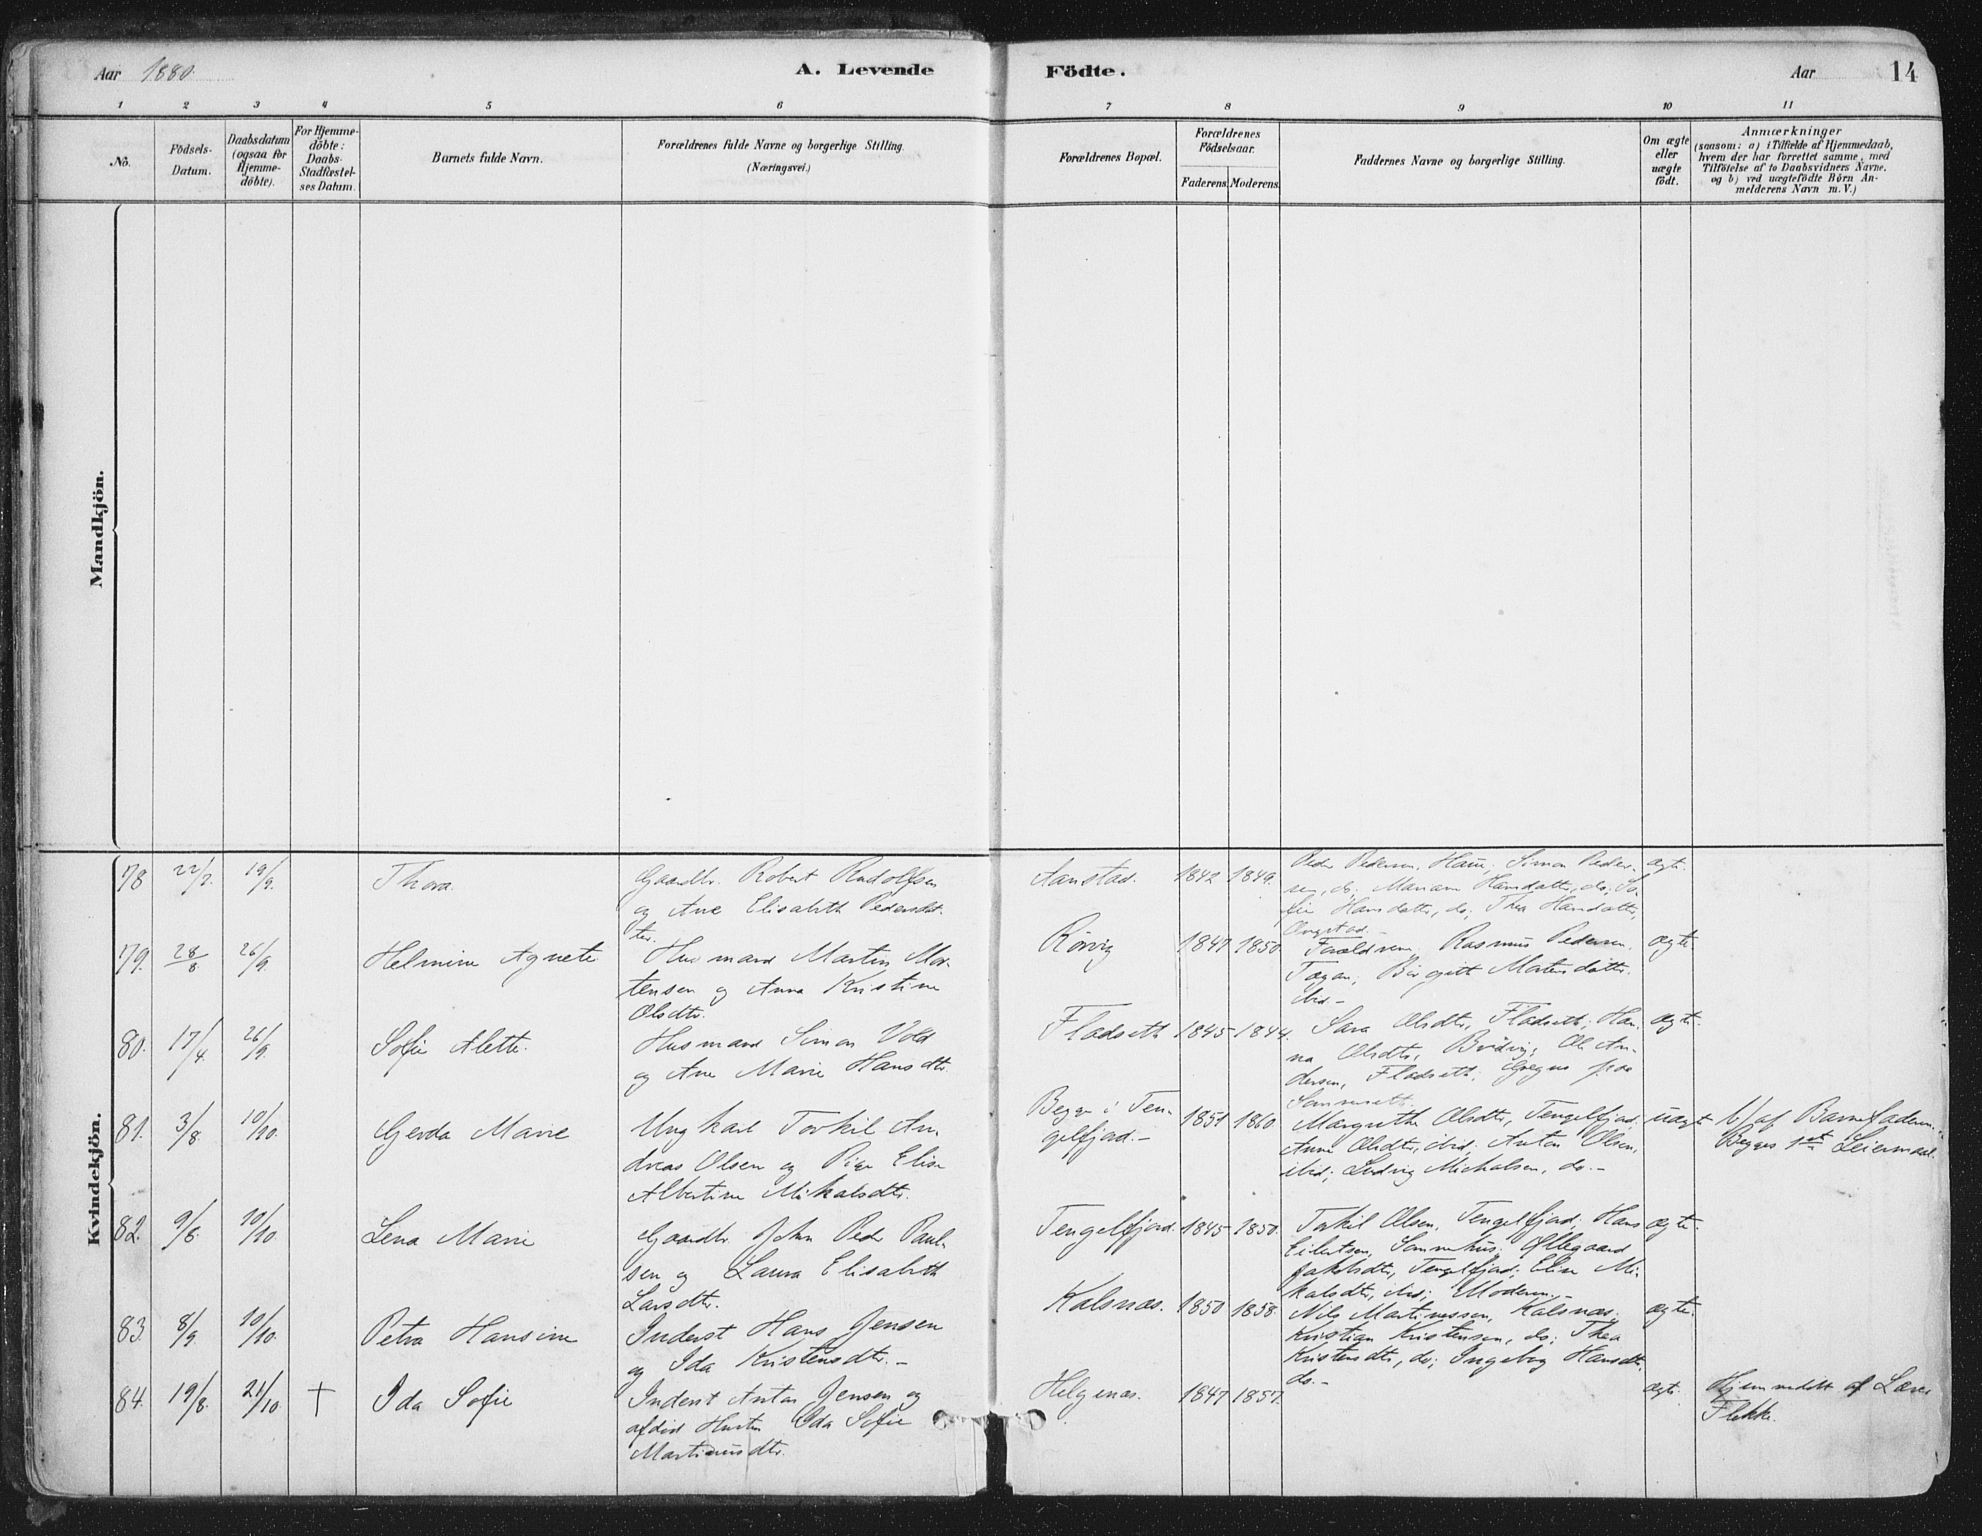 Aar 1880.
A. Levende Födte.
Aar
14
1 2 3 4 5 6 7 8 9 10 11
No.
Födsels-Datum.
Daabsdatum (ogsaa for Hjemme-döbte).
For Hjemme-döbte: Daabs-Stadfæstel-ses Datum.
Barnets fulde Navn.
Forældrenes fulde Navne og borgerlige Stilling.
(Næringsvei.)
Forældrenes Bopæl.
Forældrenes Födselsaar.
Faderens. Moderens.
Faddernes Navne og borgerlige Stilling.
Om ægte eller uægte födt.
Anmærkninger
(saasom: a) i Tilfælde af Hjemmedaab,
hvem der har forrettet samme, med
Tilföielse af to Daabsvidners Navne,
og b) ved uægtefödte Börn An-
melderens Navn m. V.)
Mandkjön.
Kvindekjön.
78 22/7. 19/9. Thora. Gaardbr. Robert Rudolfsen
og Ane Elisabeth Pedersdat-
ter.
Aanstad. 1842 1849. Peder Pedersen, Simon Peder-
sen, do; Mariane Hansdatter, do; So-
fie Hansdatter, do; Thea Hansdatter,
ægte.
79. 28/8 26/9. Helmine Agnete Husmand Martin Mor-
tensen og Anna Kristine
Olsdtr.
Rörvig 1847 1850. Forældrene, Rasmus Pedersen,
Birgitt Mortensdatter,
ibid.-
ægte
80. 17/4 26/9. Sofie Alette. Husmand Simon Vold
og Ane Marie Hansdtr.
Fladseth 1845 1844. Sara Olsdtr, Fladseth; Han-
na Olsdtr, Ole An-
dersen, Fladseth;
ægte.
81. 3/8 10/10. Gerda Marie Ungkarl Torkil An-
dreas Olsen og Pige Elise
Albertine Mikalsdtr.
Begge i Ten-
gelfjord.-
1851 1860. Margrethe Olsdtr, Tengelfjord;
Anne Olsdtr, ibid; Anton Olsen,
ibid; Ludvig Michalsen, do.-
uægt. af Barnefaderen.
Begges 1ste Leiermaal.
82. 9/8. 10/10. Lena Marie Gaardbr. John Peder Paul-
sen og Laura Elisabeth
Larsdtr.
Tengelfjord. 1845 1850. Torkil Olsen, Tengelfjord; Hans
Eilertsen, Øllegaard
Jakobsdtr, Tengelfjord; Elise Mi-
kalsdtr, ibid; Moderen.-
ægte.
83. 8/9 10/10. Petra Hansine Inderst Hans Jensen
og Ida Kristensdtr.-
Kalsnæs. 1850 1858. Nils Martinussen, Kalsnæs;
Kristian Kristensen, do; Thea
Kristensdtr, do; Ingeborg Hansdtr.
do.-
ægte.
84. 19/8. 21/10. † Ida Sofie Inderst Anton Jensen og
afdöd Hustru Ida Sofie
Martinusdtr.
Helgenæs. 1847 1857. ægte. Hjemmedöbt af Lærer
Flekke.